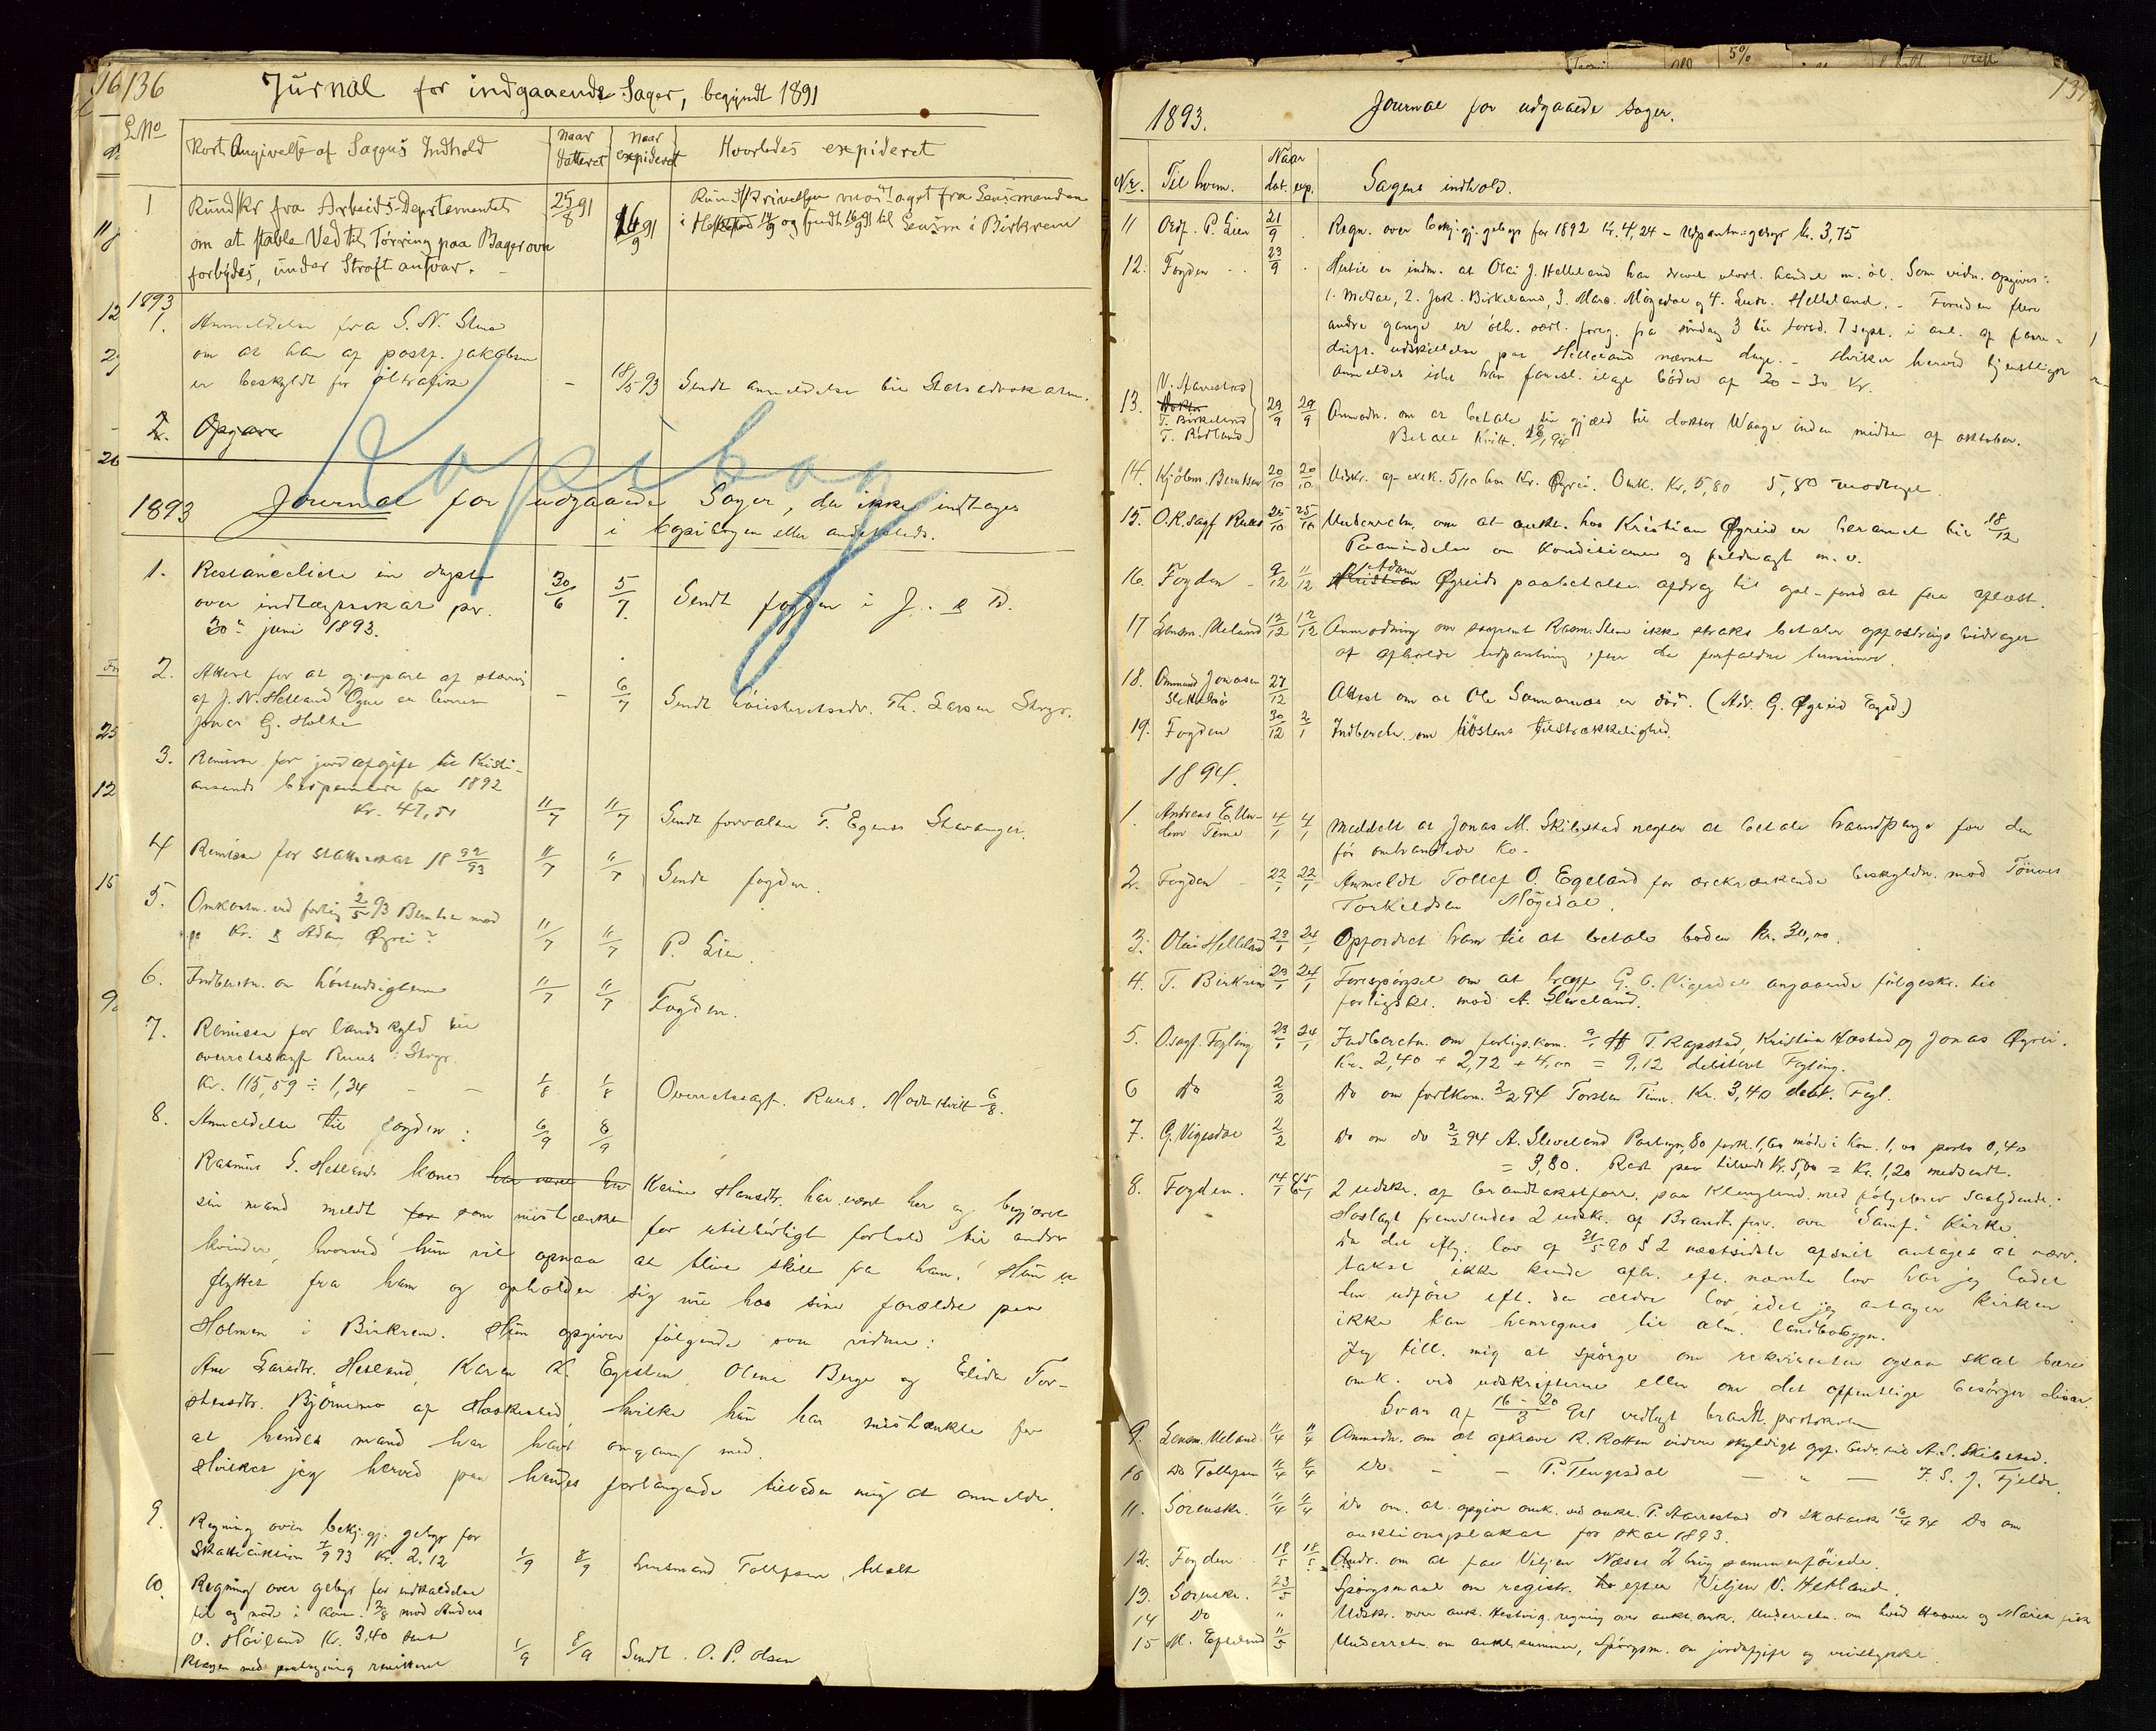 136
Jurnal for indgaaende Sager, begyndt 1891
L.No
Kort Angivelse af Sagens Indhold
naar datteret
naar expideret
Hvorledes expideret
1
Rundskr fra Arbeids-Departementet
om at stable Ved til Tørring paa Bagerovn
forbydes, under Straffansvar.
25/8 91
16/9 91
Rundskrivelsen modtaget fra Lensmanden
i Heskestad 14/9 og sendt 16/9 91 til Lensm i Birkrem
1893
1.
Anmeldelse fra S. N. Slue
om at han af postf. Jakobsen
er beskyldt for øltrafik
18/5 93
Sendt anmeldelse til Statsadvokaten.
2. Opgave
Kopibog
1893
Journal for udgaaede Sager, der ikke indtages
i kopibogen eller andetsteds.
1.
Restanceliste in duplo
over indtægtsskat pr.
30te juni 1893.
30/6
5/7.
Sendt fogden i J. & D.
2.
Attest for at gjenpart af stævn
af J. N. Helland Ogne er leveret
Jonas G. Holte
6/7
Sendt overretssadv. Th. Larsen Stvgr.
3.
Remisse for jordafgift til Kristi-
ansands bispemense for 1892
Kr. 47,51
11/7
11/7
Sendt forvalter T. Egenes Stavanger.
4
Remisse for statsskat 18 92/93
11/7
11/7
Sendt fogden.
5.
Omkostn. ved forlig 2/5 93 Berntsen mod
Kr. & Adam Øgrei
11/7
11/7
P. Lien.
6.
Indberetn. om høstudsigterne
11/7
11/7
Fogden.
7.
Remisse for landskyld til
overretssagf Ruus Stvgr.
Kr. 115,59 ÷ 1,34
1/8
1/8
Overretssagf. Ruus. Modt kvitt 6/8.
8.
Anmeldelse til fogden:
6/9
8/9
Rasmus S. Heslands kone har været her Karine Hansdtr. har været her og begjæret
sin mand meldt for som mistænkt for utilbørligt forhold til andre
kvinder, hvorved hun vil opnaa at blive skilt fra ham. Hun er
flyttet fra ham og opholder sig nu hos sine forældre paa
Holmen i Birkrem. Hun opgiver følgende som vidner:
Ane Larsdtr. Hesland, Karen K. Egesten, Olena Berge og Elida Tor-
stensdtr. Bjørnemo af Heskestad, hvilke hun har mistænkte for
at hendes mand har havt omgang med.
Hvilket jeg herved paa hendes forlangende tillader mig at anmelde.
9.
Regning over bekj.gj. gebyr for
skatteauktion 1/9 93 Kr. 2,12
1/9
8/9
Lensmand Tollefsen betalt
10.
Regning over gebyr for indkaldelse
til og møde i kom. 2/8 mod Anders
O. Høiland Kr. 3,40 samt
klagen med paategning remitteret
1/9
8/9
Sendt O. P. Olsen
137
1893.
Journal for udgaaede sager.
Nr.
Til hvem.
Naar
dat. exp.
Sagens indhold.
11
Ordf. P. Lien
21/9
Regn. over bekj.gj. gebyr for 1892 Kr. 4,24 – Udpantn.gebyr kr. 3,75
12.
Fogden
23/9
Hertil er indm. at Olai J. Helleland har drevet ulovl. handel m. øl. Som vidn. opgives:
1. Meldal, 2. Jak. Birkeland, 3. Mars. Møgedal og 4. Ludv. Helleland. – Foruden flere
andre gange er ølh. særl. foreg. fra søndag 3 til torsd. 7 sept. i anl. af faare-
drifts udskillelse paa Helleland nævnte dage. – Hvilket herved tjenstligst
anmeldes idet han foresl. ilagt bøder af 20 – 30 kr.
13.
V. Aarrestad
T. Birkeland
T. Rødland
29/9
29/9
Anmodn. om at betale sin gjæld til doktor Waage inden midten af oktober.
Betalt Kvitt. 94
14.
Kjøbm. Berntsen
20/10
20/10
Udskr. af exek. 5/10 hos Kr. Øgrei. Omk. Kr. 5,80 5,80 modtaget.
15.
O.R.sagf Ruus
25/10
25/10
Underretn. om at aukt. hos Kristian Øgreid er berammet til 18/12
Paamindelse om konditioner og fuldmagt m. v.
16.
Fogden
9/12
11/12
Kristian Adam Øgreids paabetalte afdrag til opl.-fond at faa aflæst.
17
Lensm. Ueland
12/12
12/12
Anmodning om saafremt Rasm. Slene ikke straks betaler opfostringsbidraget
at afholde udpantning for de forfaldne terminer.
18.
Ommund Jonasen
Slettebø
27/12
Attest om at Ole Sannarnæs er død. (Adr. G. Øgreid Egsd.)
19.
Fogden
30/12
2/1
Indberetn. om høstens tilstrækkelighed.
1894.
1.
4/1
4/1
Meddelt at Jonas M. Skibestad negter at betale haandpenge for den
før omhandlede ko.
2.
Fogden
22/1
22/1
Anmeldt Tollef O. Egeland for ærekrænkende beskyldn. mod Tønnes
Torkildsen Møgedal.
3.
Olai Helleland
23/1
24/1
Opfordret ham til at betale boden kr. 30,00.
4.
T. Birkrem
23/1
24/1
Forespørgsel om at træffe G. O. Vigesdal angaaende følgeskr. til
forligskl. mod A. Sleveland.
5.
O.sagf. Fogling
23/1
24/1
Indberetn. om forligs.kom. 9/1 T. Rapstad, Kristian Hæstad og Jonas Øgrei.
Kr. 2,40 + 2,72 + 4,00 = 9,12 debiteret Fogling.
6
Do
2/2
Do om forl.kom. 2/2 94 Torsten Time. Kr. 3,40 debt. Fogl.
7.
G. Vigesdal
2/2
Do om do 2/2 94 A. Sleveland Paategn. 80 fork. 1,60 møde i kom. 1,00 porto 0,40
= 3,80. Rest paa tilsendt Kr. 5,00 = Kr. 1,20 medsendt.
8.
Fogden.
2 udskr. af brandtakstforr. paa Klungland med følgebrev saalydende:
Hoslagt fremsendes 2 udskr. af Brandt.forr. over "Samf." kirke.
Da det iflg. lov af 31/5 90 § 2 næstsidste afsnit antages at nærv.
takst ikke kunde afh. eft. nævnte lov har jeg ladet
den udføre eft. den ældre lov, idet jeg antager kirken
ikke kan henregnes til alm. landsbebygn.
Jeg till. mig at spørge om rekvirenten ogsaa skal bære
omk. ved udskrifterne eller om det offentlige besørger disse.
Svar af 16-20/3 94 vedlagt brandt.protokolen
9.
Lensm. Ueland
11/4
11/4
Anmodn. om at afkræve R. Rotten videre skyldigt opf. bidr. til A. S. Skibestad.
10
Do Tollefsen
11/4
11/4
Do – – P. Tengesdal – " – T. S. J. Fjelde.
11.
Sorenskr.
11/4
11/4
Do om at opgive omk. ved aukt. P. Aarrestad do skatauk 10/4 94 Do om
auktionsplakat for skat 1893.
12.
Fogden
18/5
18/5
Andr. om at faa Viljen Næses 2 brug sammenføiede.
13.
Sorenskr.
23/5
Spørgsmaal om registr. bo efter Viljen V. Hetland.
14
Do
"
Udskr. over auk. Hestvig. regning over aukt.omk. Underretn. om hvad Haaver og Maren fik
15
M. Eftelund
11/5
Underretn. om auktsummer, Spørgsm. om jordafgift og veivedligehold.